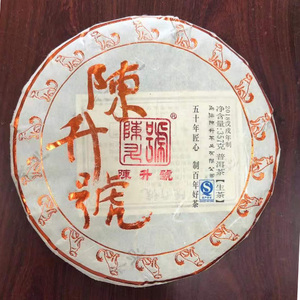 陳升號
陳升號
®
陳升號
五十年匠心 制百年好茶
2018戊戌年制
净含量:357克 普洱茶【生茶】